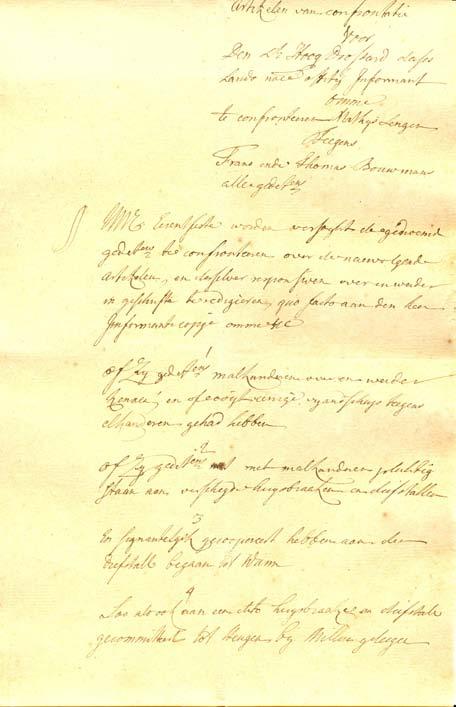 Artikelen van confrontatie
Voor
Den Hr Hoog Drossard deses
Lands nae offitij Informant
omme
te confronteren Mathys
Teegens
Frans ende Thomas Bouwmans
alle gedetens
Eerentfeste worden versoght de
gedetens te confronteren over de naervolgende
artikelen, en derselver responsiven over en weeder
in geschrifte te redigieren, quo facto aan den heer
Informant copije omme &c
1
of Zy gedetens malkanderen over en weeder
kennen, en of ooijt eenige vyandschap teegens
elkanderen gehad hebben
2
of Zy gedetens niet met malkanderen
staan aen verscheyde huysbraaken en diefstallen
3
En signantelyk gecoopereert hebben aan den
diefstall begaan tot Wann
4
Soo als ook aan een dito huysbraake en diefstall
gecommitteert tot by Willem